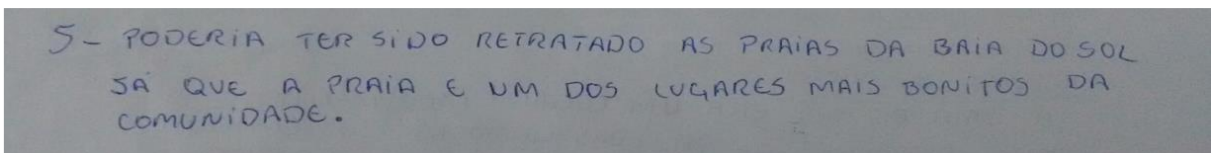 5- PODERIA TER SIDO RETRATADO AS PRAIAS DA BAIA DO SOL
JÁ QUE A PRAIA E UM DOS LUGARES MAIS BONITOS DA
COMUNIDADE.